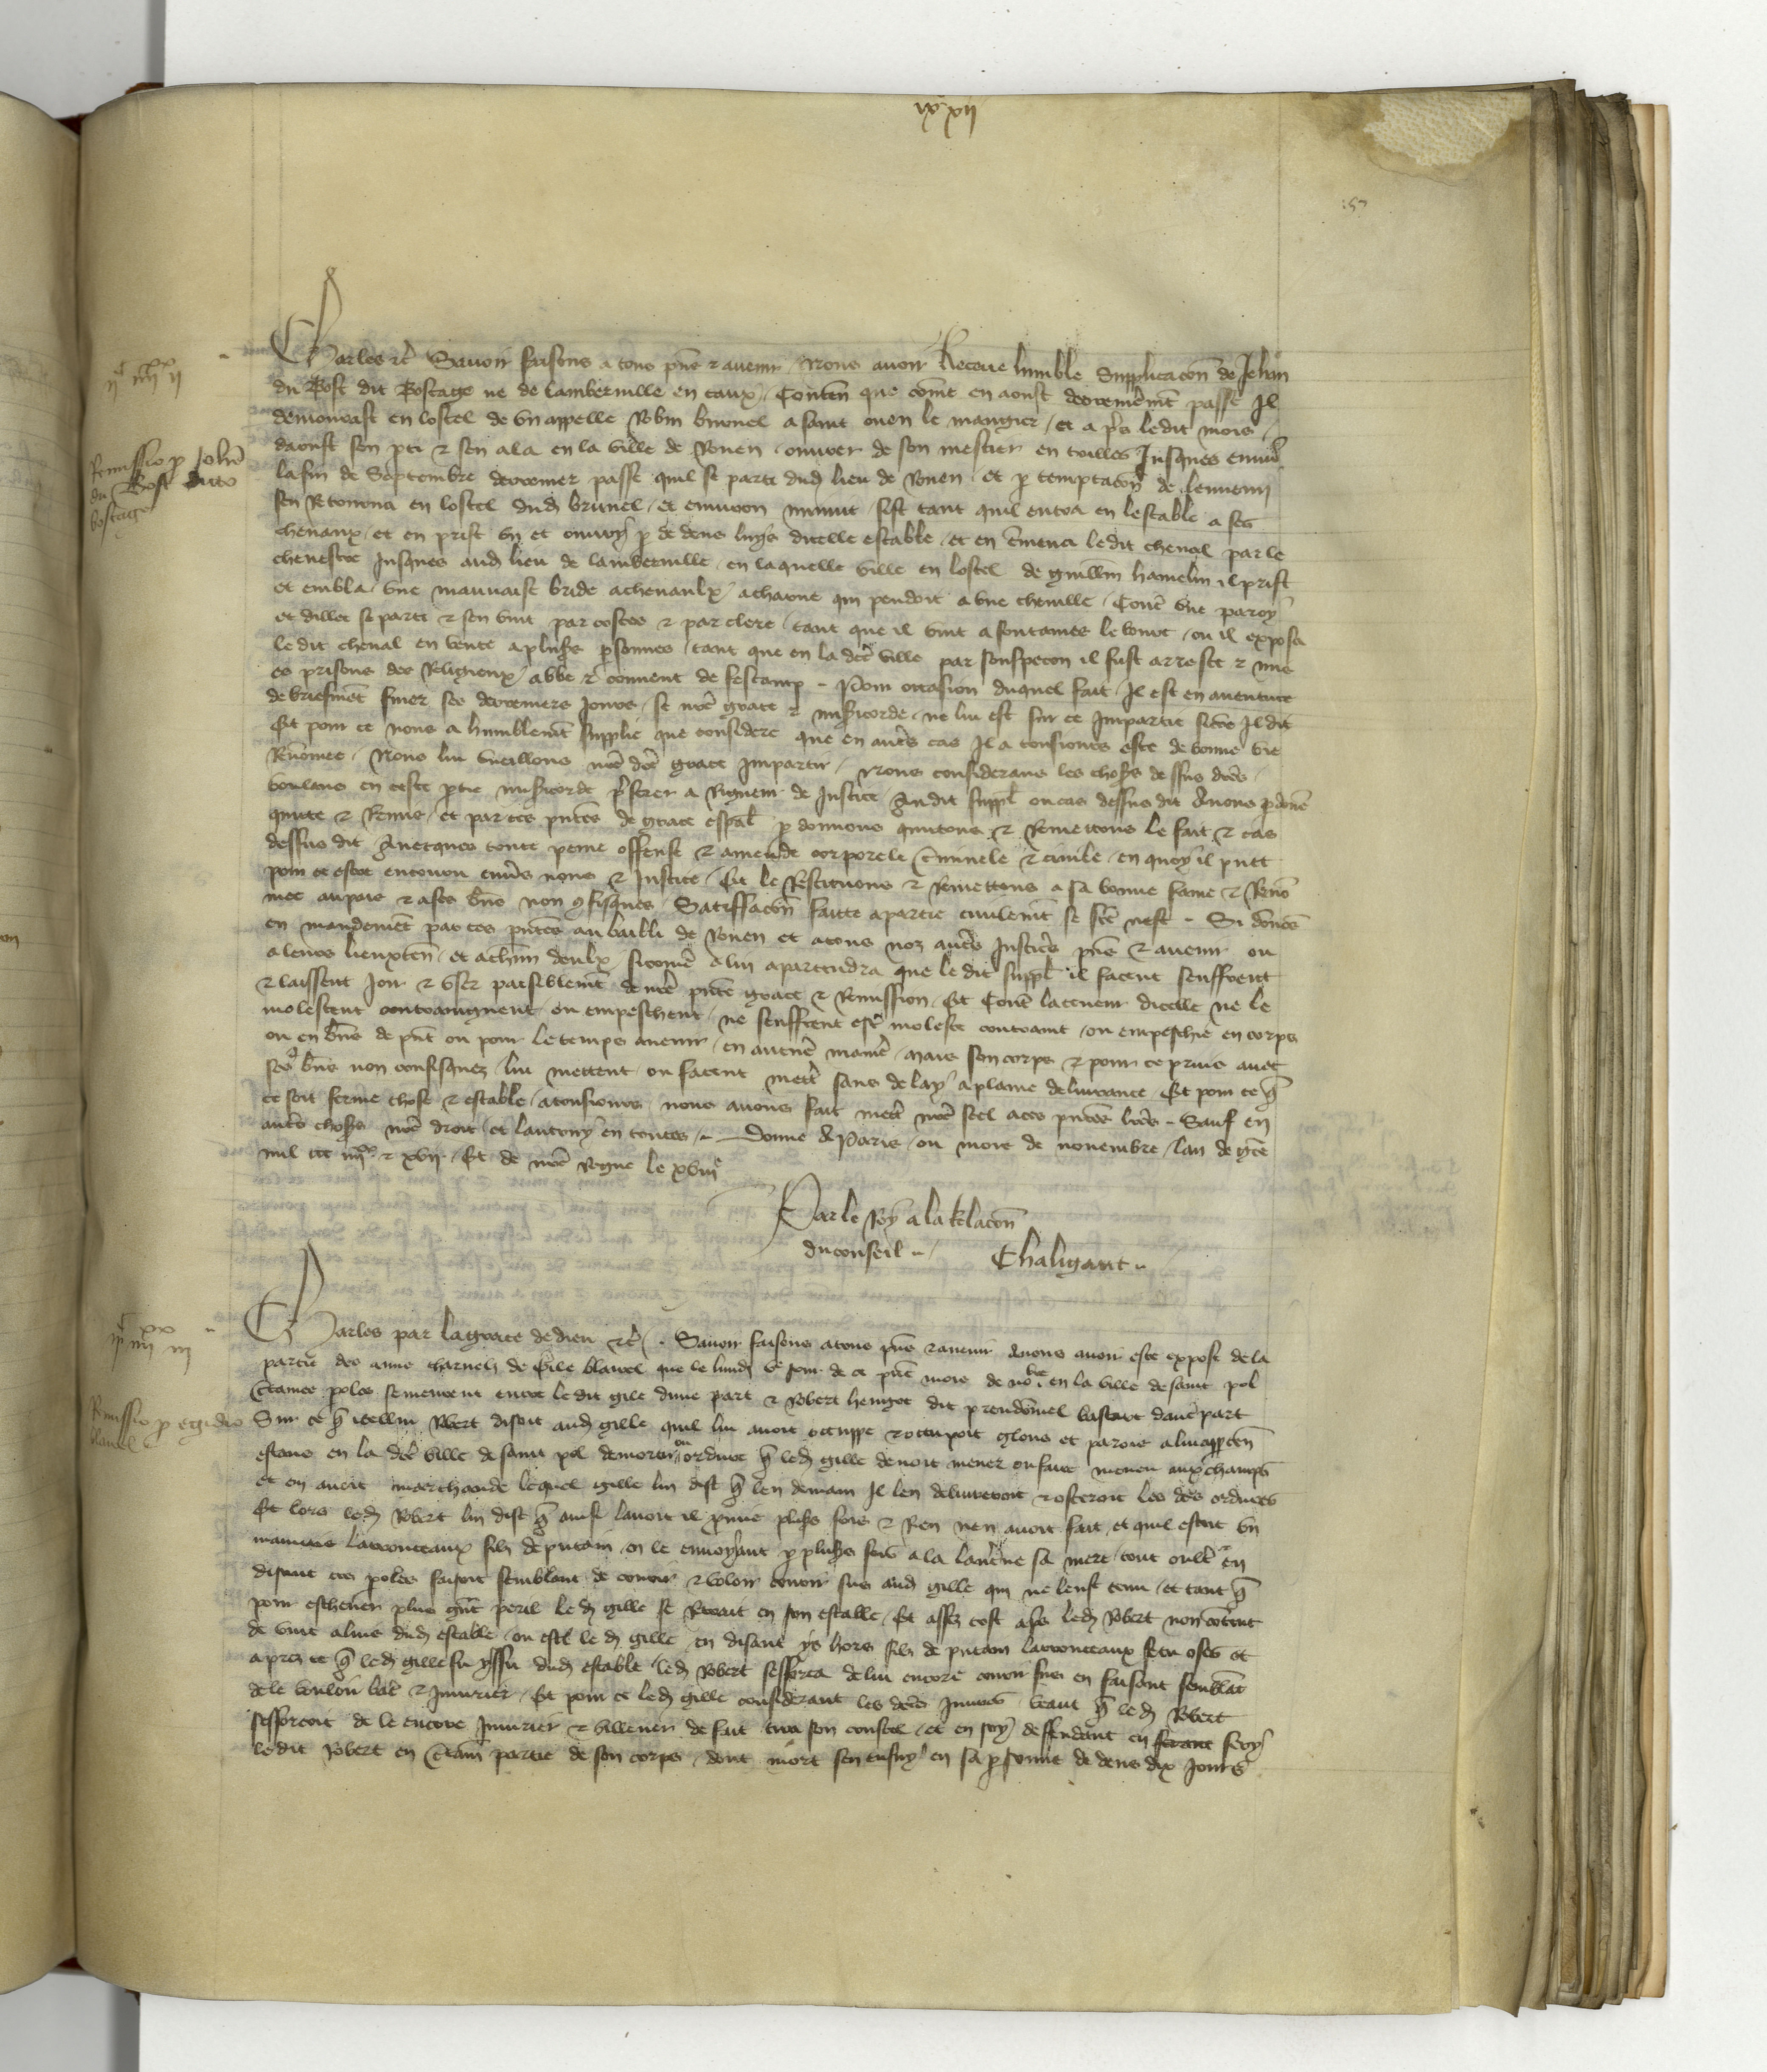 ix xii
Charles etc Savoir faisons a tous pns et avenir Nous avoir Receue lumble Supplicacon de Jehan
du Bost dit Bostage ne de lamberville en caux Conten que come en aoust derrenieremt passe Il
demourast en lostel de un appelle Robin brunel a saint ouen le maugier et apres ledit mois
daoust sen pti et sen ala en la ville de Rouen ouvrer de son mestier en toilles Jusques enviro
la fin de Septembre derrenier passe quil se parti dud lieu de Rouen et p temptacon de lennemi
sen Retourna en lostel dud brunel et environ minuit fist tant quil entra en lestable a ses
chevaux et en prist un et ouvry p dedens luys dicelle estable et en emena ledit cheval par le
chevestre Jusques aud lieu de lamberville en laquelle ville en lostel de guillem hamelin il prist
et embla une mauvaise bride a chevaulx a charue qui pendoit a une cheville Contre une paroy
et dillec se parti et sen vint par costes et par clere tant que il vint a fontaines le bourc ou il exposa
ledit cheval en vente a plusrs psonnes tant que en la dce ville par souspecon il fust arreste et mis
es prisons des Religieux abbe et couvent de fescamp Pour occasion duquel fait Il est en aventure
de briefment finer ses derreniers Jours se nre grace et misicorde ne lui est sur ce Impartie sicome Il dit
Et pour ce nous a humblemt supplie que considere que en autres cas Il a tousiours este de bonne vie
Renomee Nous lui vueillons nre dce grace Impartir Nous considerans les choses dessus dces
voulans en ceste ptie misicorde pferer a Rigueur de Justice Audit suppl ou cas dessus dit Avons pdone
quitte et Remis et par ces pntes de grace espal pdonnons quittons et Remettons le fait et cas
dessus dit Avecques toute peine offense et amende corporele criminele et civile en quoy il puet
pour ce estre encouru envers nous et Justice Et le Restituons et Remettons a sa bonne fame et Reno
mee au pais et a ses bns non confisques Satisfacon faitte a partie civilemt se fce nest Si donons
en mandement par ces pntes au bailli de Rouen et a tous noz autres Justiciers pns et avenir ou
a leurs lieuxten et a chun deulx sicome a lui apartendra que le dit suppl il facent seuffrent
et laissent Joir et user paisiblemt de nre pnte grace et Remission Et Contre la teneur dicelle ne le
molestent contraingnent ou empeschent ne seuffrent estre moleste contraint ou empeschie en corps
ou en bns de pnt ou pour le temps avenir en aucune maniere Mais son corps et pour ce prins avec
ses bns non confisquez lui mettent ou facent mettre sans delay a plaine delivrance Et pour ce que
ce soit ferme chose et estable a tousiours nous avons fait mettre nre seel a ces pntes lres Sauf en
autres choses nre droit et lautruy en toutes Donne A Paris ou mois de novembre lan de gce
mil ccc iiiixx et xvii Et de nre Regne le xviiie
Par le Roy a la Relacon
du conseil Chaligaut
iic iiiixx ii
Remissio p Johe
du Bost dicto
bostage
Charles par la grace de dieu etc Savoir faisons a tous pns et avenir Anous avoir este expose de la
partie des amis charnelz de Gile blavel que le lundi ve jour de ce pnt mois de nobre en la ville de saint pol
Ctaines poles se meurent entre le dit gile dune part et Robert hengot dit preudomel bastart dautre part
Sur ce que icellui Robert disoit aud gille quil lui avoit occuppe et occupoit et parois a lui appten
estans en la dce ville de saint pol de mortier ou ordure que led gille devoit mener ou faire mener aux champs
et en avoit marchande lequel gille lui dist que lendemain Il len delivreroit et osteroit les des ordures
Et lors led Robert lui dist que ainsi lavoit il pmis plusrs fois et Rien nen avoit fait et quil estoit un
mauvais larronceaux filz de putain en le envoyant p plusrs fois a la sa mere tout oultre en
disant ces poles faisoit semblant de courir et voloir courir sus aud gille qui ne leust tenu et tant que
pour eschever plus grant peril led gille se Retrait en son estable Et assez tost apres led Robert non content
de vint a luis dud estable ou estoit led gille en disant ys hors filz de putain larronceaux se tu oses et
apres ce que led gille fu yssu dud estable led Robert sefforca de lui encore courir sus en faisant semblat
de le vouloir batre et Iniurier Et pour ce led gille considerant les dces Iniures veant que led Robert
sefforcoit de le encore Iniurier et villener de fait tira son coustel et en soy deffendant en fery
le dit Robert en Ctaine partie de son corps dont mort sen ensuy en sa psonne dedens dix Jours
iic iiiixx iii
Remissio p egidio
blavel